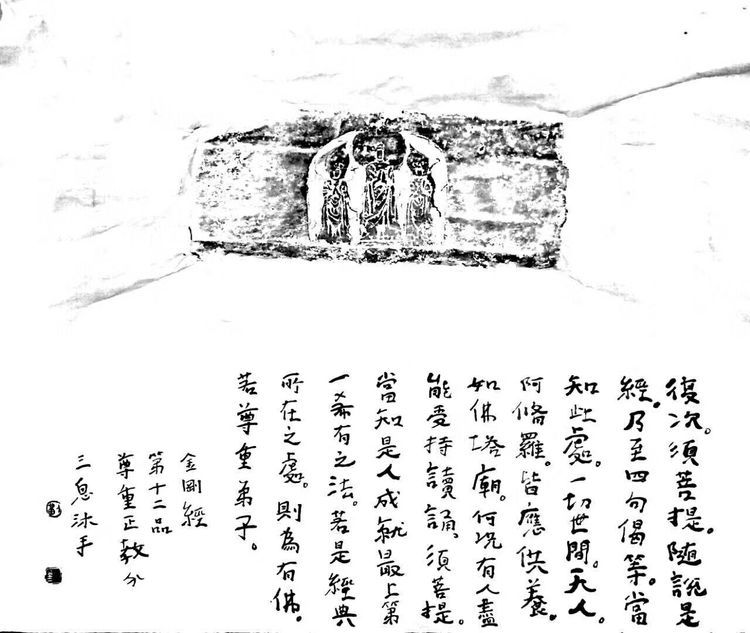 復次。須菩提。隨說是
經。乃至四句偈等。當
知此處。一切世間。天人。
阿脩羅。皆應供養。
如佛塔廟。何況有人盡
能受持讀誦。須菩提。
當知是人成就最上第
一希有之法。若是經典
所在之處。則為有佛。
若尊重弟子。
金剛經
第十二品
尊重正教分
三息沐手